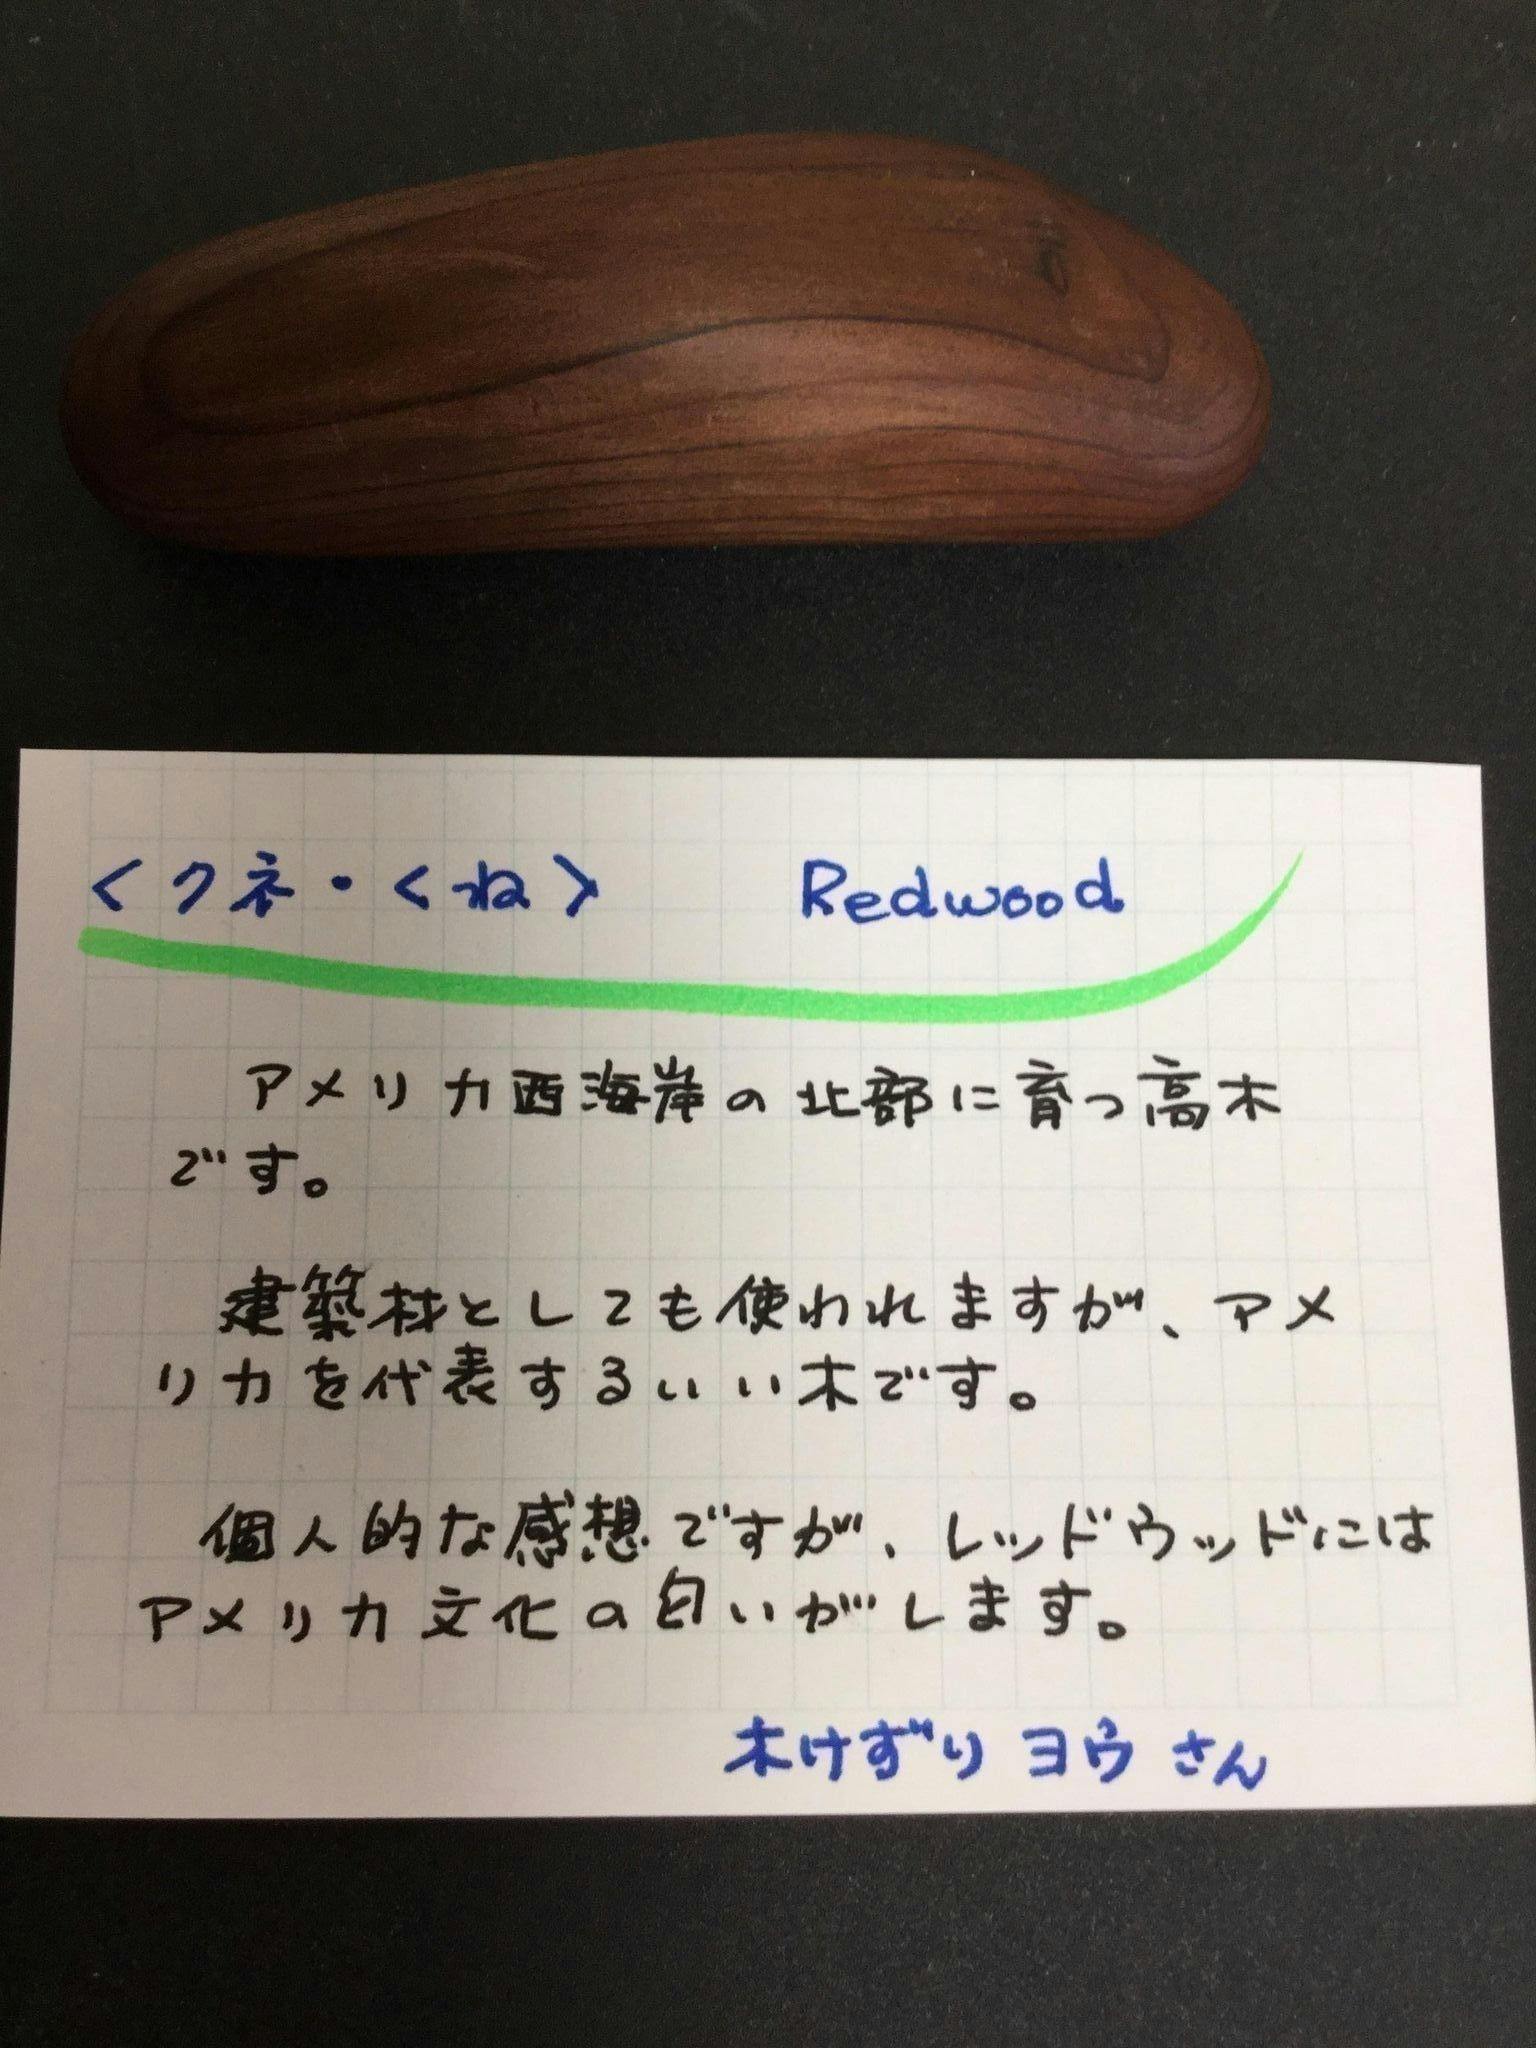 <クネ・くね> Redwood
アメリカ西海岸の北部に育つ高木
です。
建築材としても使われますが、アメ
リカを代表するいい木です。
個人的な感想ですが、レッドウッドには
アメリカ文化の匂いがします。
木けずり ヨウさん